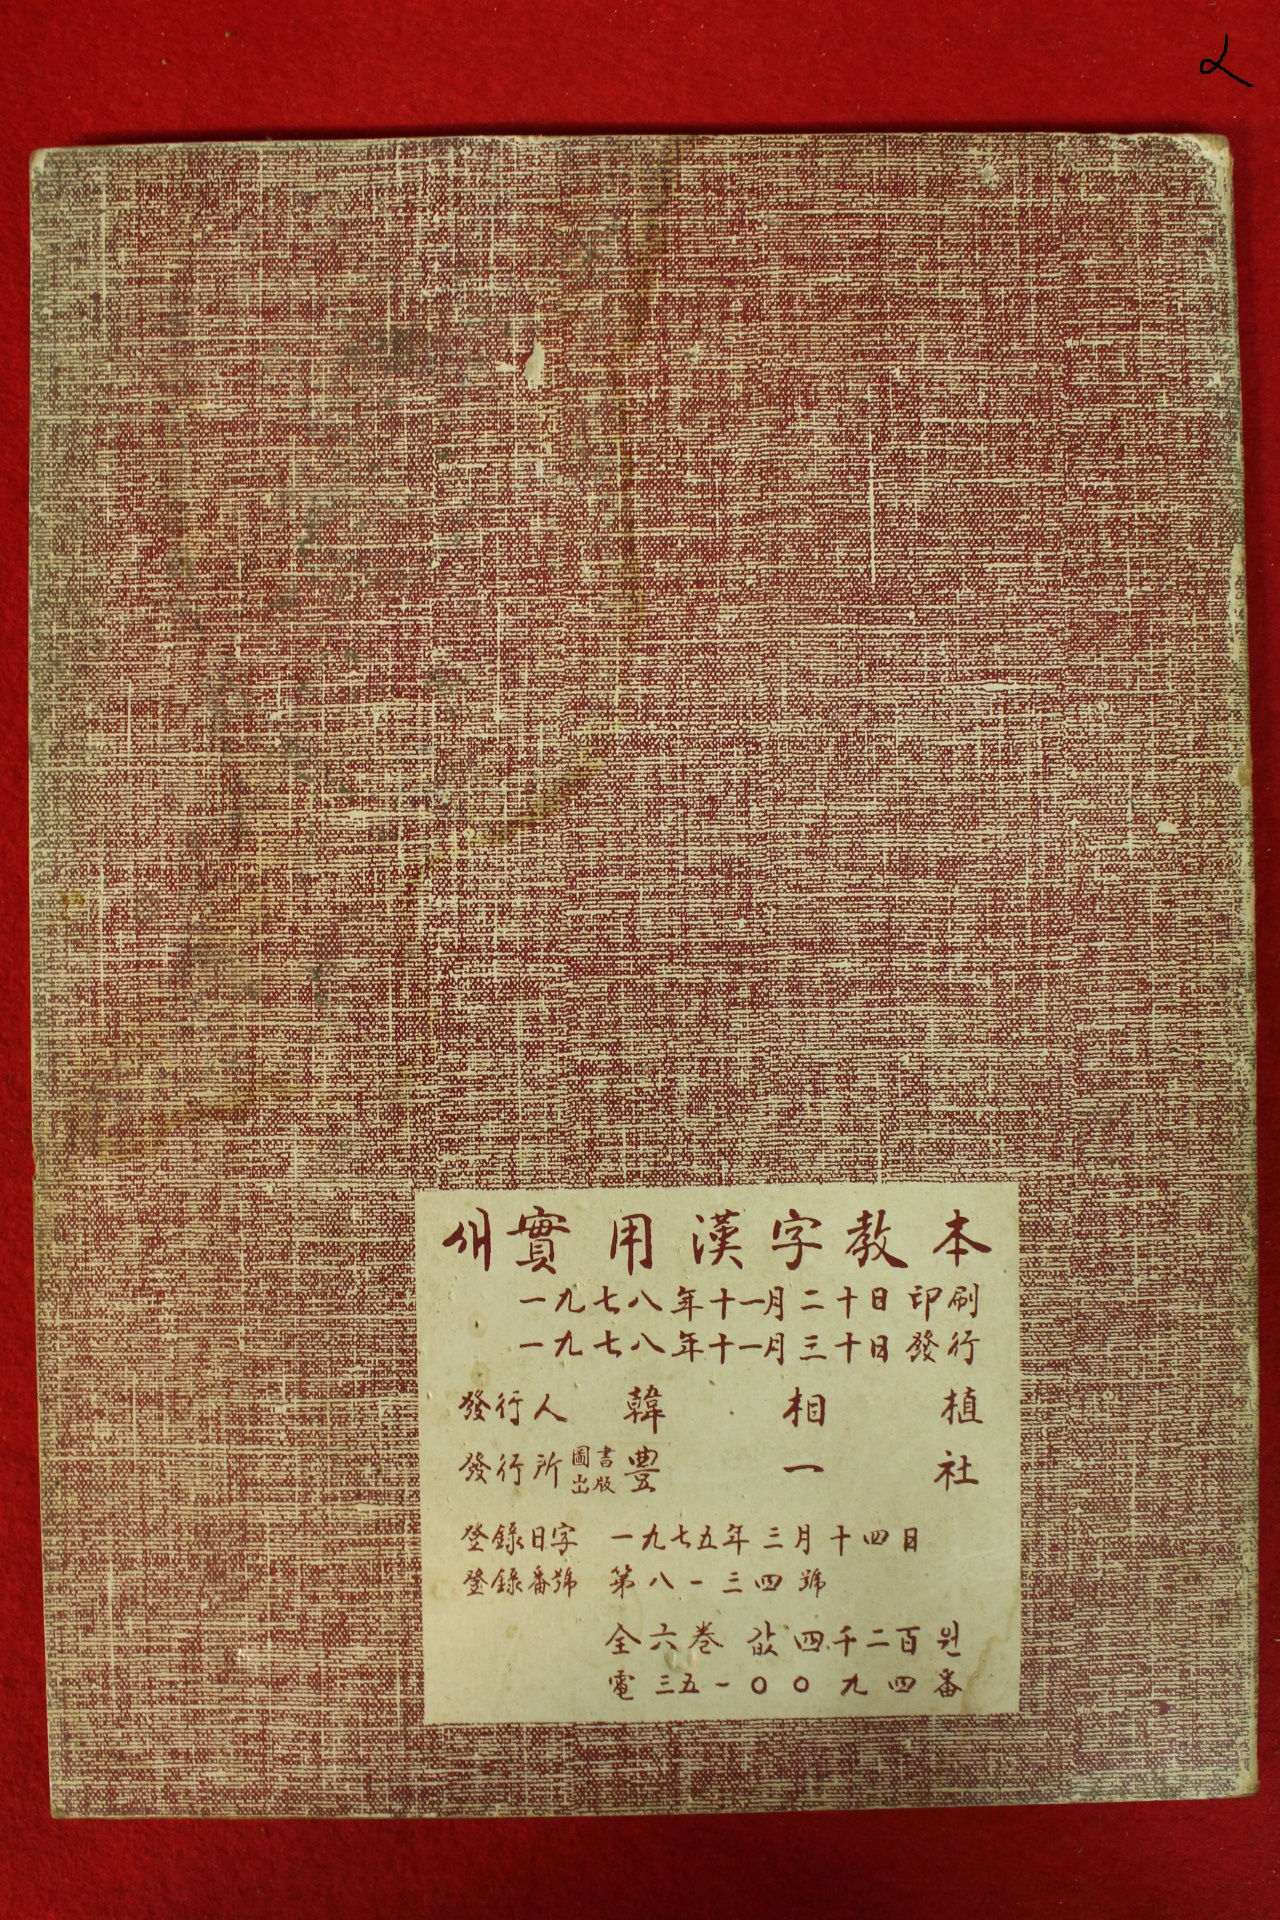 새實用漢字教本
一九七八年十一月二十日 印刷
一九七八年十一月三十日 發行
發行人 韓相植
發行所 圖書出版 豊一社
登錄日字 一九七五年三月十四日
登錄番號 第八一三四號
全六巻 값 四千二百원
電 三五一〇〇九四番